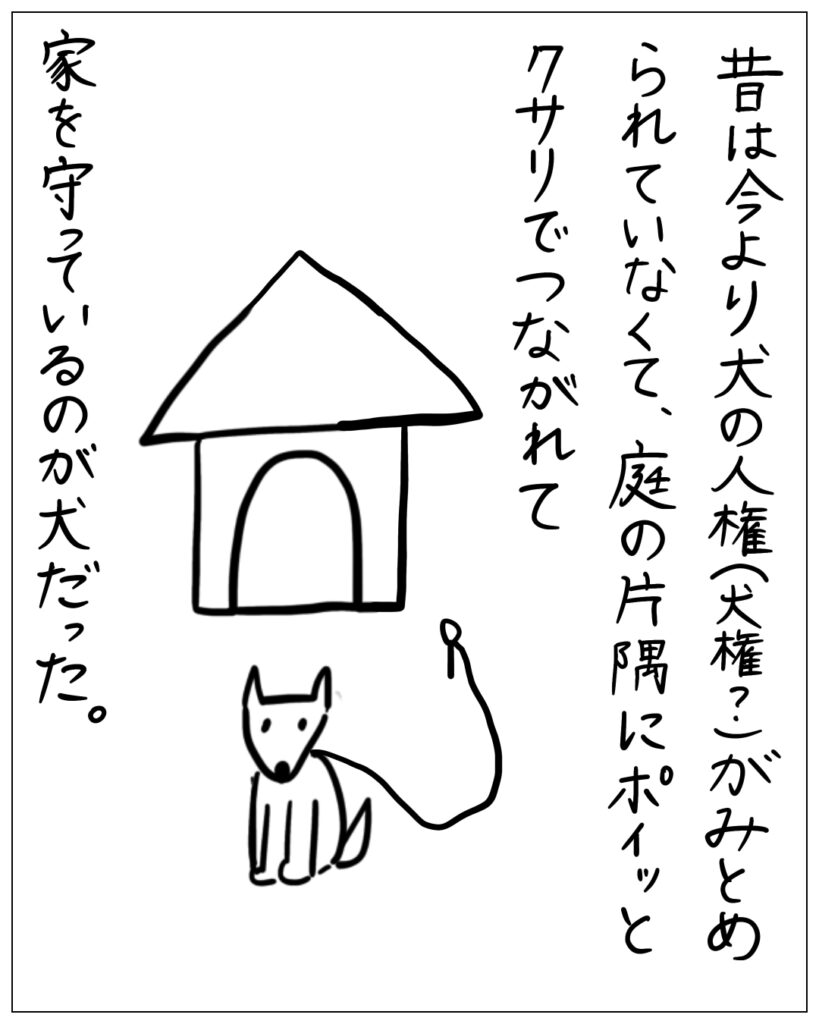 昔は今より犬の人権(犬権?)がみとめ
られていなくて、庭の片隅にポイッと
クサリでつながれて
家を守っているのが犬だった。